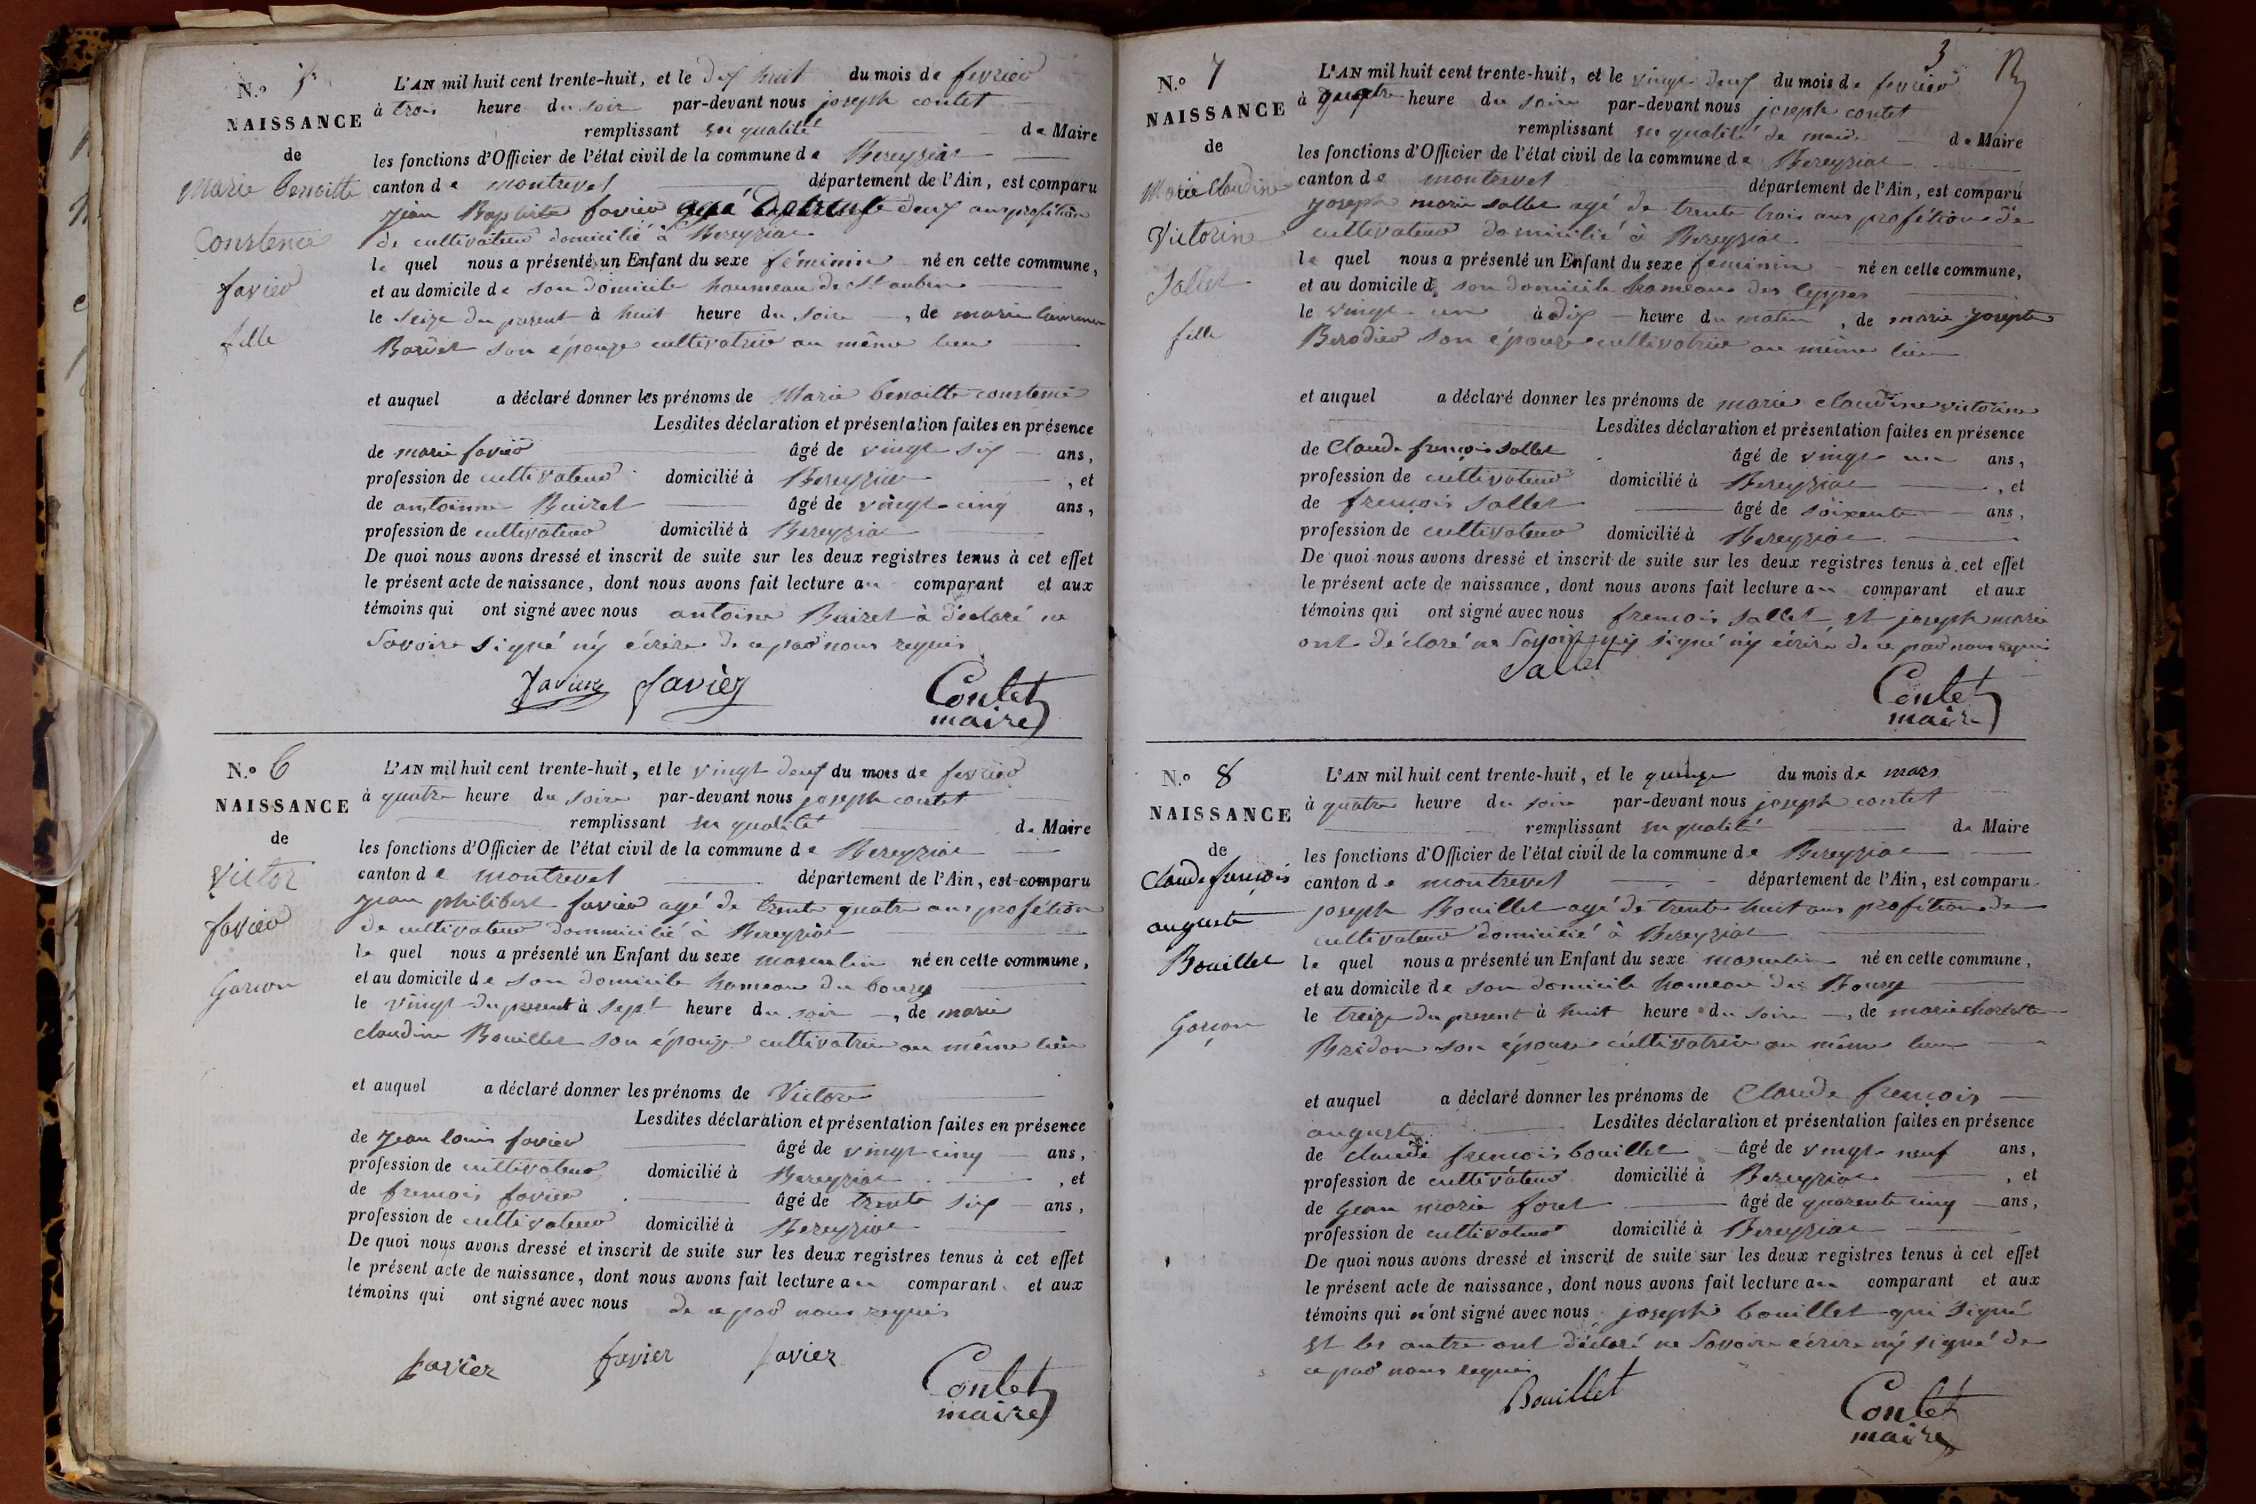 N.º 5
NAISSANCE
de
Marie benoitte
Constence
favier
fille
L'AN mil huit cent trente-huit, et le dix huit du mois de fevrier
à trois heure du soir par-devant nous joseph contet
remplissant en qualité de Maire
les fonctions d'Officier de l'état civil de la commune de Bereyziat
canton de montrevel département de l'Ain, est comparu
jean Baptiste favier agé de trente deux ans profétion
de cultivateur domicilié à Bereyziat
le quel nous a présenté un Enfant du sexe féminin né en cette commune,
et au domicile de son domicile haumeau de St aubin
le seize du present à huit heure du soir, de marie
son épouze cultivatrice au même lieu
et auquel a déclaré donner les prénoms de Marie benoitte constence
Lesdites déclaration et présentation faites en présence
de marie favier âgé de vingt six ans,
profession de cultivateur domicilié à Bereyziat, et
de antoinne Buiret âgé de vingt cinq ans,
profession de cultivateur domicilié à Bereyziat
De quoi nous avons dressé et inscrit de suite sur les deux registres tenus à cet effet
le présent acte de naissance, dont nous avons fait lecture au comparant et aux
témoins qui ont signé avec nous antoine Buiret à déclaré ne
Savoire signé ný écrire de ce par nous requis
Favier favier Contet
maire
N.º 6
NAISSANCE
de
Victor
favier
Garcon
L'AN mil huit cent trente-huit, et le vingt deux du mois de fevrier
à quatre heure du soire par-devant nous joseph contet
remplissant en qualité de Maire
les fonctions d'Officier de l'état civil de la commune de Bereyziat
canton de montrevel département de l'Ain, est comparu
jean philibert favier agé de trente quatre ans profétion
de cultivateur dommicilié à Bereyziat
le quel nous a présenté un Enfant du sexe masculin né en cette commune,
et au domicile de son domicile hameau du bourg
le vingt du present à sept heure du soir, de marie
claudine Bouillet son épouze cultivatrice au même lieu
et auquel a déclaré donner les prénoms de Victore
Lesdites déclaration et présentation faites en présence
de jean louis favier âgé de vingt cinq ans,
profession de cultivateur domicilié à Bereyziat, et
de frencois favier âgé de trente six ans,
profession de cultivateur domicilié à Bereyziat
De quoi nous avons dressé et inscrit de suite sur les deux registres tenus à cet effet
le présent acte de naissance, dont nous avons fait lecture au comparant et aux
témoins qui ont signé avec nous de ce par nous requis
favier favier favier Contet
maire
3
N.º 7
NAISSANCE
de
Marie Claudine
Victorine
Sallet
fille
L'AN mil huit cent trente-huit, et le vingt deux du mois de fevrier
à quatre heure du soire par-devant nous joseph contet
remplissant en qualité de maire de Maire
les fonctions d'Officier de l'état civil de la commune de Bereyziat
canton de montrevel département de l'Ain, est comparu
joseph marie sallet agé de trente trois ans profétion de
cultivateur domicilié à Bereyziat
le quel nous a présenté un Enfant du sexe feminin né en cette commune,
et au domicile de son domicile hameau des
le vingt un à dix heure du matin, de marie josepte
Berodier son épouze cultivatrice au même lieu
et auquel a déclaré donner les prénoms de marie claudine victorine
Lesdites déclaration et présentation faites en présence
de Claude françois sallet âgé de vingt un ans,
profession de cultivateur domicilié à Bereyziat, et
de frençois sallet âgé de soixente ans,
profession de cultivateur domicilié à Bereyziat
De quoi nous avons dressé et inscrit de suite sur les deux registres tenus à cet effet
le présent acte de naissance, dont nous avons fait lecture au comparant et aux
témoins qui ont signé avec nous frencois sallet et joseph marie
ont déclaré ne Savoir signé ný écrire de ce par nous requis
Sallet
Contet
maire
N.º 8
NAISSANCE
de
Claude françois
auguste
Bouillet
Garcon
L'AN mil huit cent trente-huit, et le quinze du mois de mars
à quatre heure du soire par-devant nous joseph contet
remplissant en qualité de Maire
les fonctions d'Officier de l'état civil de la commune de Bereyziat
canton de montrevel département de l'Ain, est comparu
joseph Bouillet agé de trente huit ans profétion de
cultivateur domicilié à Bereyziat
le quel nous a présenté un Enfant du sexe masculin né en cette commune,
et au domicile de son domicile hameau des Bourg
le treize du present à huit heure du soire, de marie charlotte
Bridon son épouse cultivatrice au même lieu
et auquel a déclaré donner les prénoms de Claude frençois
auguste Lesdites déclaration et présentation faites en présence
de claude frencois bouillet âgé de vingt neuf ans,
profession de cultivateur domicilié à Bereyziat, et
de jean marie foret âgé de quarente cinq ans,
profession de cultivateur domicilié à Bereyziat
De quoi nous avons dressé et inscrit de suite sur les deux registres tenus à cet effet
le présent acte de naissance, dont nous avons fait lecture au comparant et aux
témoins qui n'ont signé avec nous joseph bouillet qui signé
et les autre ont déclaré ne Savoire écrire ný signé de
ce par nous requis
Bouillet Contet
maire